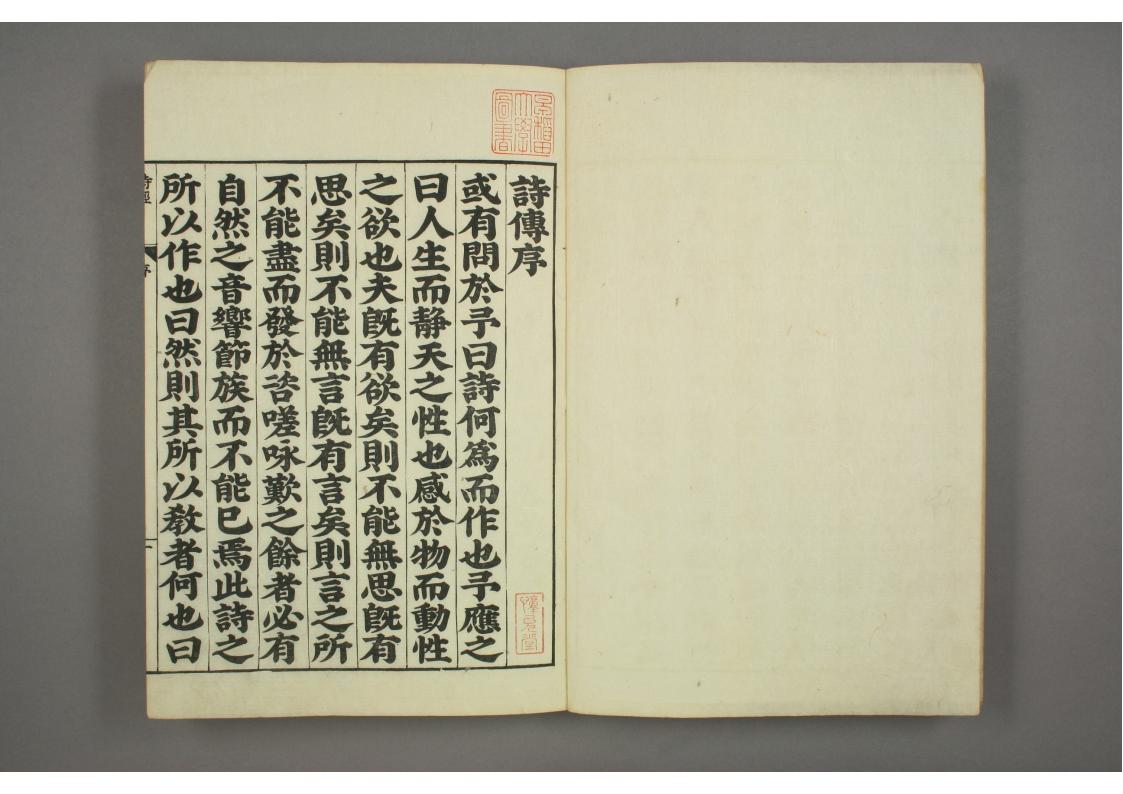 詩傳序
或有問於予曰詩何爲而作也予應之
曰人生而静天之性也感於物而動性
之欲也夫旣有欲矣則不能無思旣有
思矣則不能無言旣有言矣則言之所
不能盡而發於咨嗟咏歎之餘者必有
自然之音響節族而不能已焉此詩之
所以作也曰然則其所以敎者何也曰
詩經
序
早稲田
大學
圖書